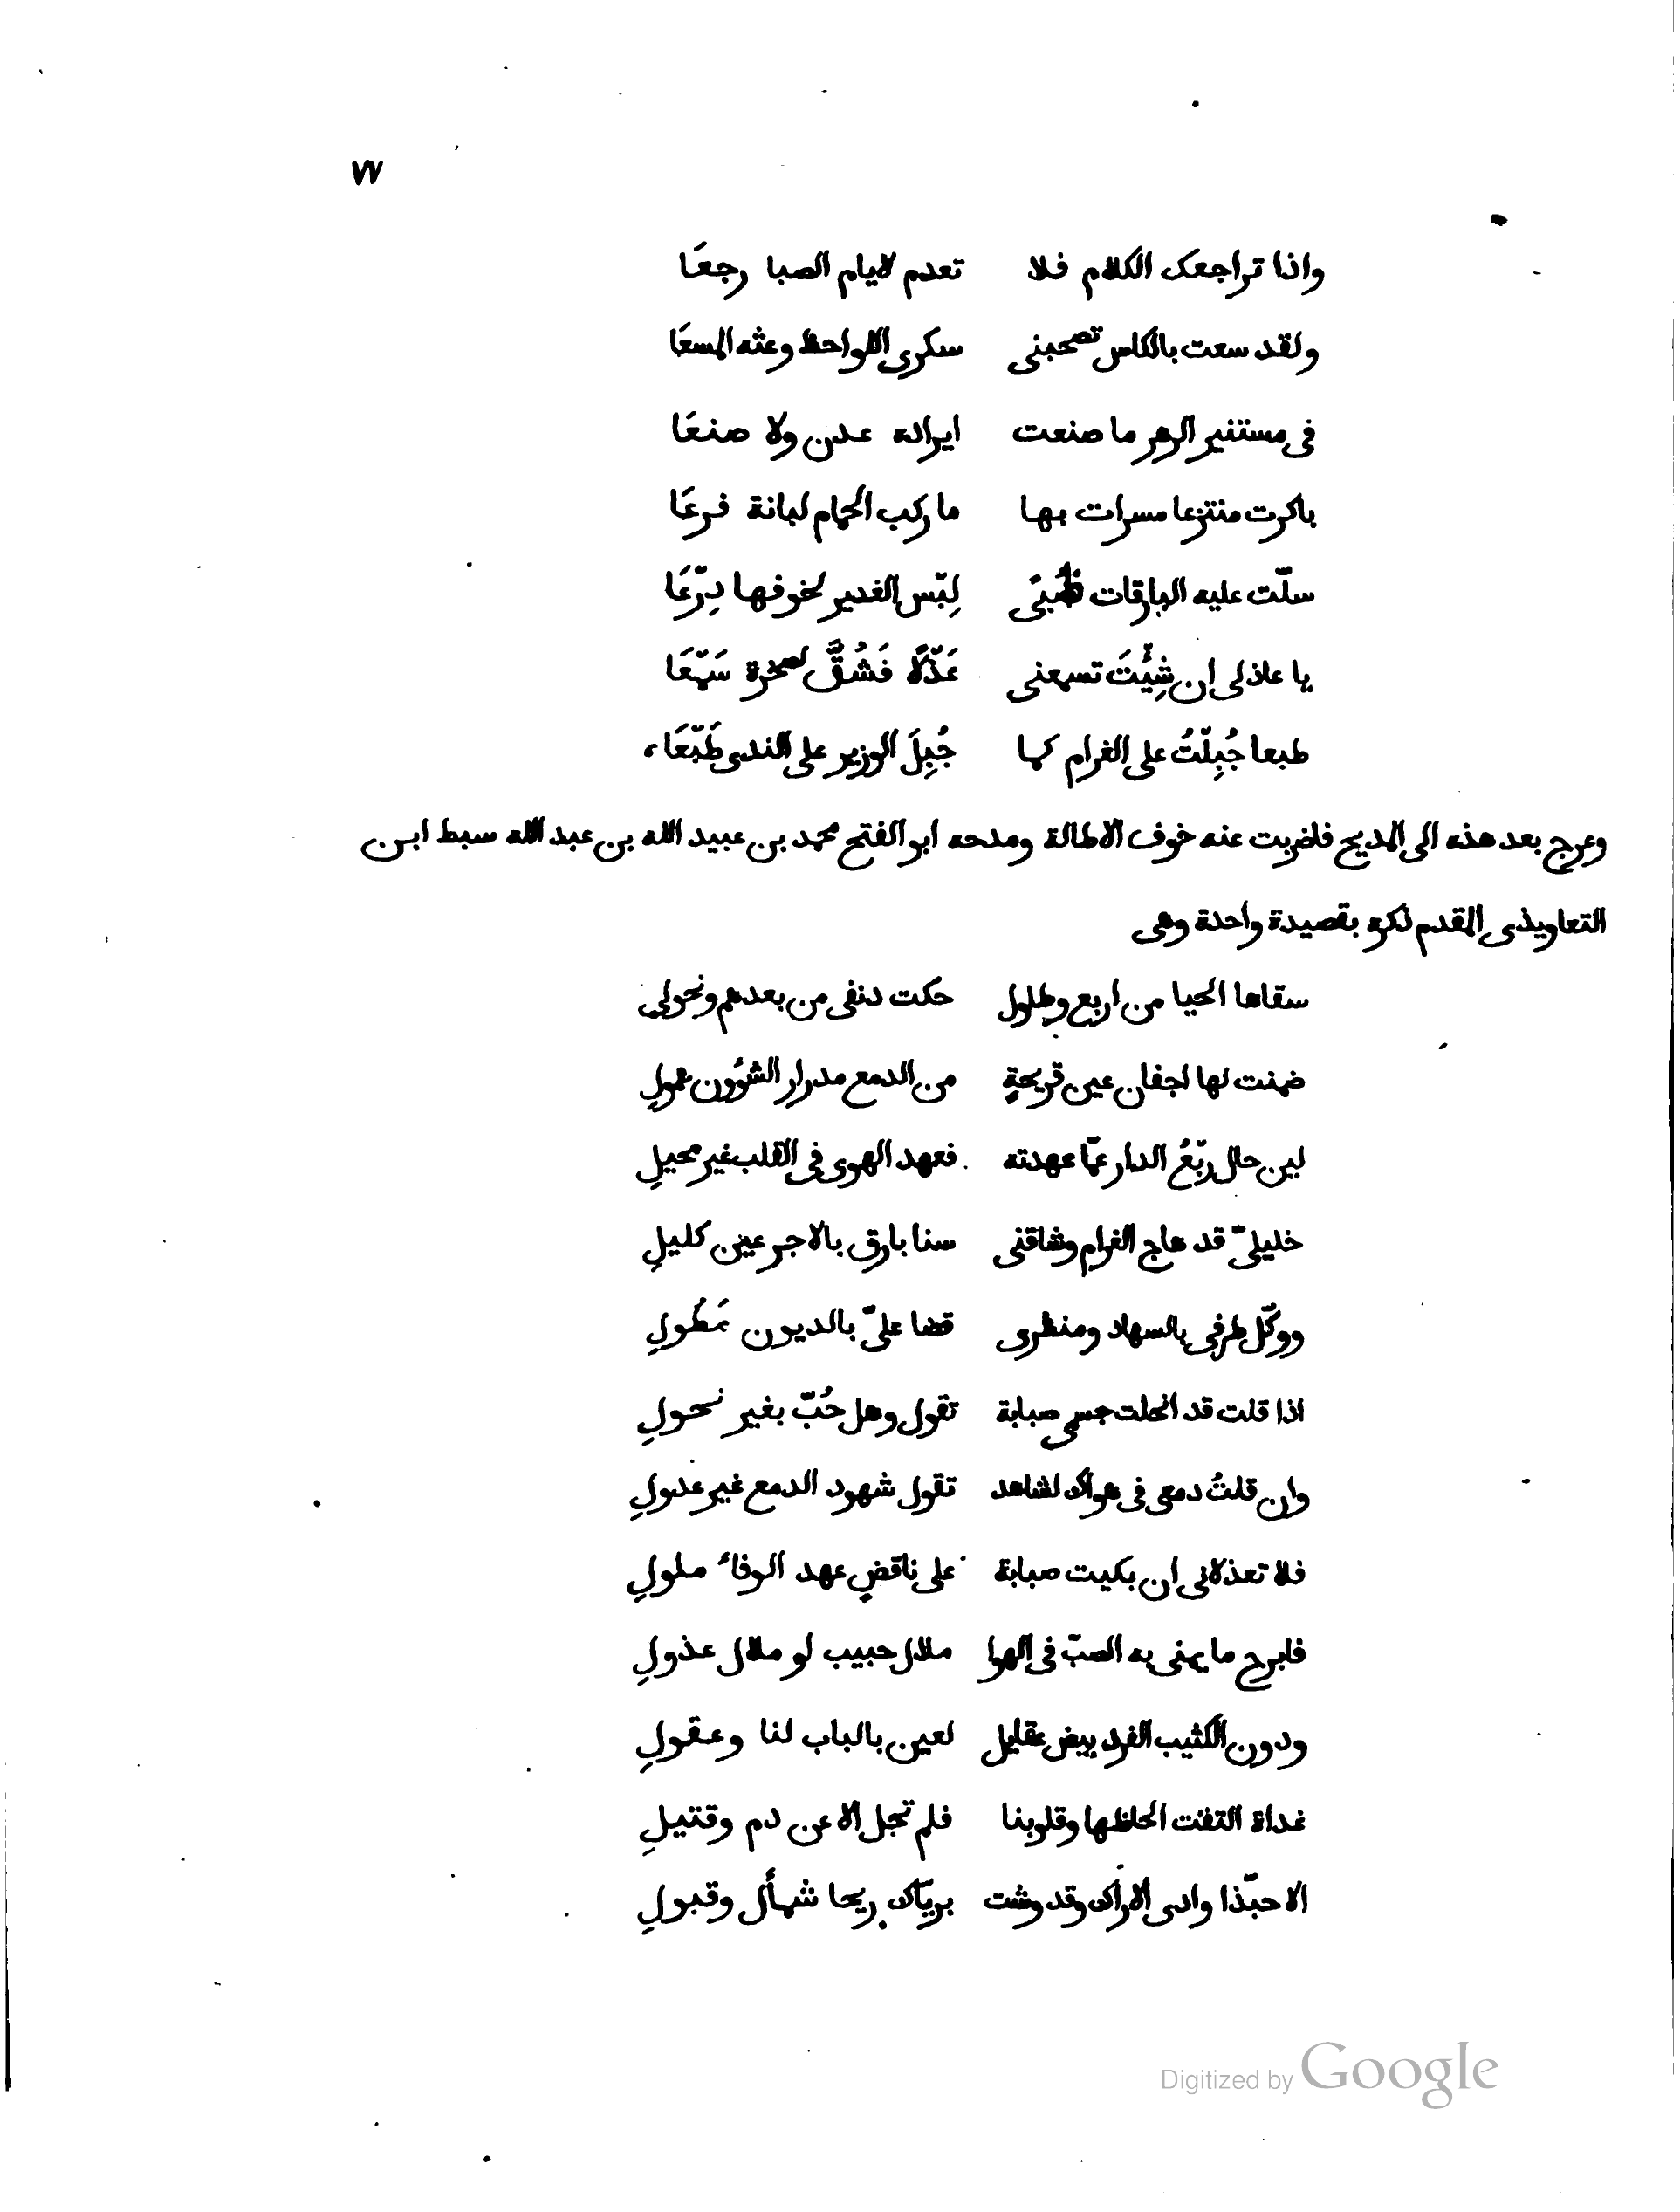 ٧٧
واذا تراجعك الكلام فلا تعدم لايام الصبا رجعَا
ولقد سعت بالكاس تصحبنى سكرى اللواحظ وعثه المسعَا
فى مستنير الزهر ما صنعت ابراده عدن ولا صنعَا
باكرت منتزعا مسرات بها ما ركب الحمام لبانة فرعَا
سلّت عليه البارقات ظُبىً لِبّس الغدير لخوفها دِرّعَا
يا عاذلى ان شِئْتَ تسمعنى عَذّلًا فَشُقَّ لصخرة سَمّعَا
طبعا جُبِلّتُ على الغرام كما جُبِلَ الوزير على الندى طَبّعَا،
وعرج بعد هذه الى المديح فاضربت عنه خوف الاطالة ومدحه ابو الفتح محمد بن عبيد الله بن عبد الله سبط ابن
التعاويذى المقدم ذكره بقصيدة واحدة وهى
سقاها الحيا من اربع وطلول حكت دنفى من بعدهم ونحولى
ضمنت لها اجفان عين قريحةٍ من الدمع مدرار الشؤون همولِ
لين حال ربّعُ الدار عمّا عهدته فعهد الهوى فى القلب غير محيلِ
خليلىّ قد هاج الغرام وشاقنى سنا بارق بالاجرعين كليلِ
ووكّل طرفى بالسهاد ومنظرى قضا علىّ بالديون مَطُولِ
اذا قلت قد انحلت جسمى صبابة تقول وهل حُبّ بغير نحولِ
وان قلتُ دمعى فى هواك لشاهد تقول شهود الدمع غير عدولِ
فلا تعذلانى ان بكيت صبابة على ناقضٍ عهد الوفاء ملولِ
فابرح ما يمنى به الصبّ فى الهوا ملال حبيب لو ملال عذولِ
ودون الكثيب الفرد بيض عقايل لعين بالباب لنا وعقولِ
غداة التقت الحاظها وقلوبنا فلم تجل الا عن دم وقتيلِ
الا حبّذا وادى الاراك وقد وشت بريّاك ريحا شمأل وقبولِ
Digitized by Google